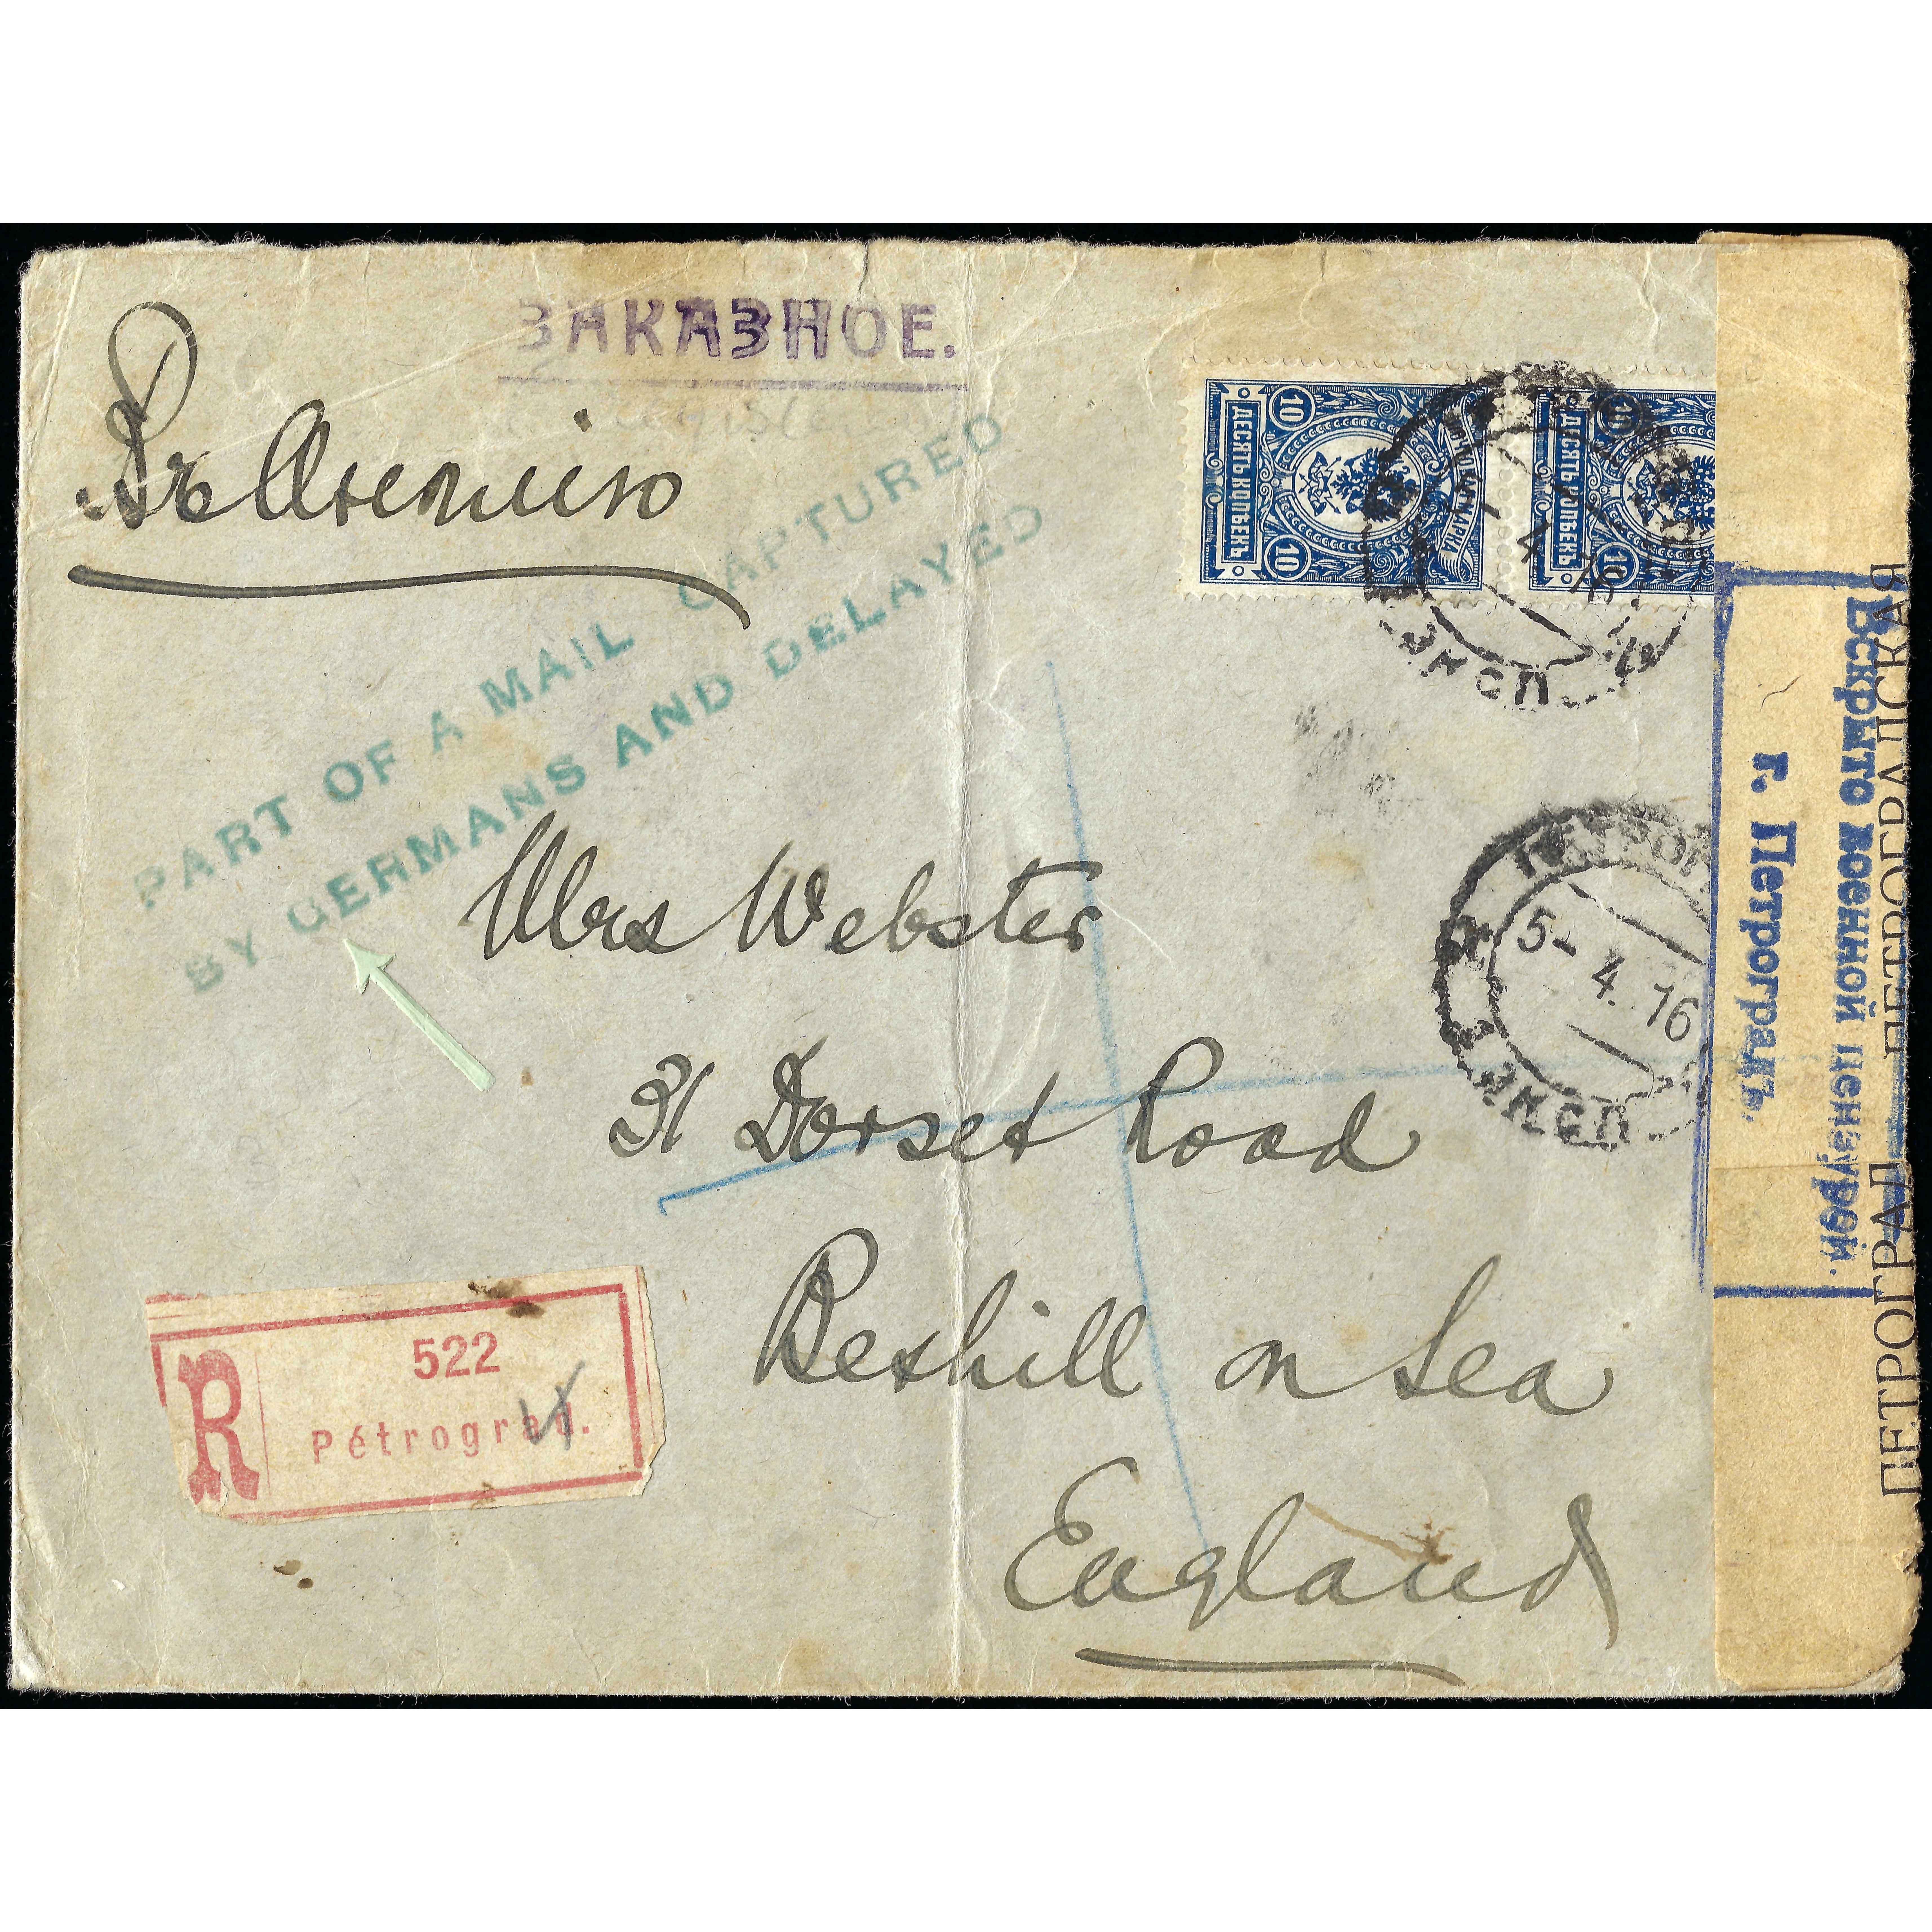 ЗАКАЗНОЕ.
Въ Англiю
PART OF A MAIL CAPTURED
BY GERMANS AND DELAYED
10 ДЕСЯТЬ КОПѢЕКЪ 10
10 ДЕСЯТЬ КОПѢЕКЪ 10
МАРКА
5-4.16
Mrs Webster
31 Dorset Road
Bexhill on Sea
England
R
522
Pétrograd.
Вскрыто военной цензурой.
г. Петроградъ.
ПЕТРОГРАД ПЕТРОГРАДСКАЯ